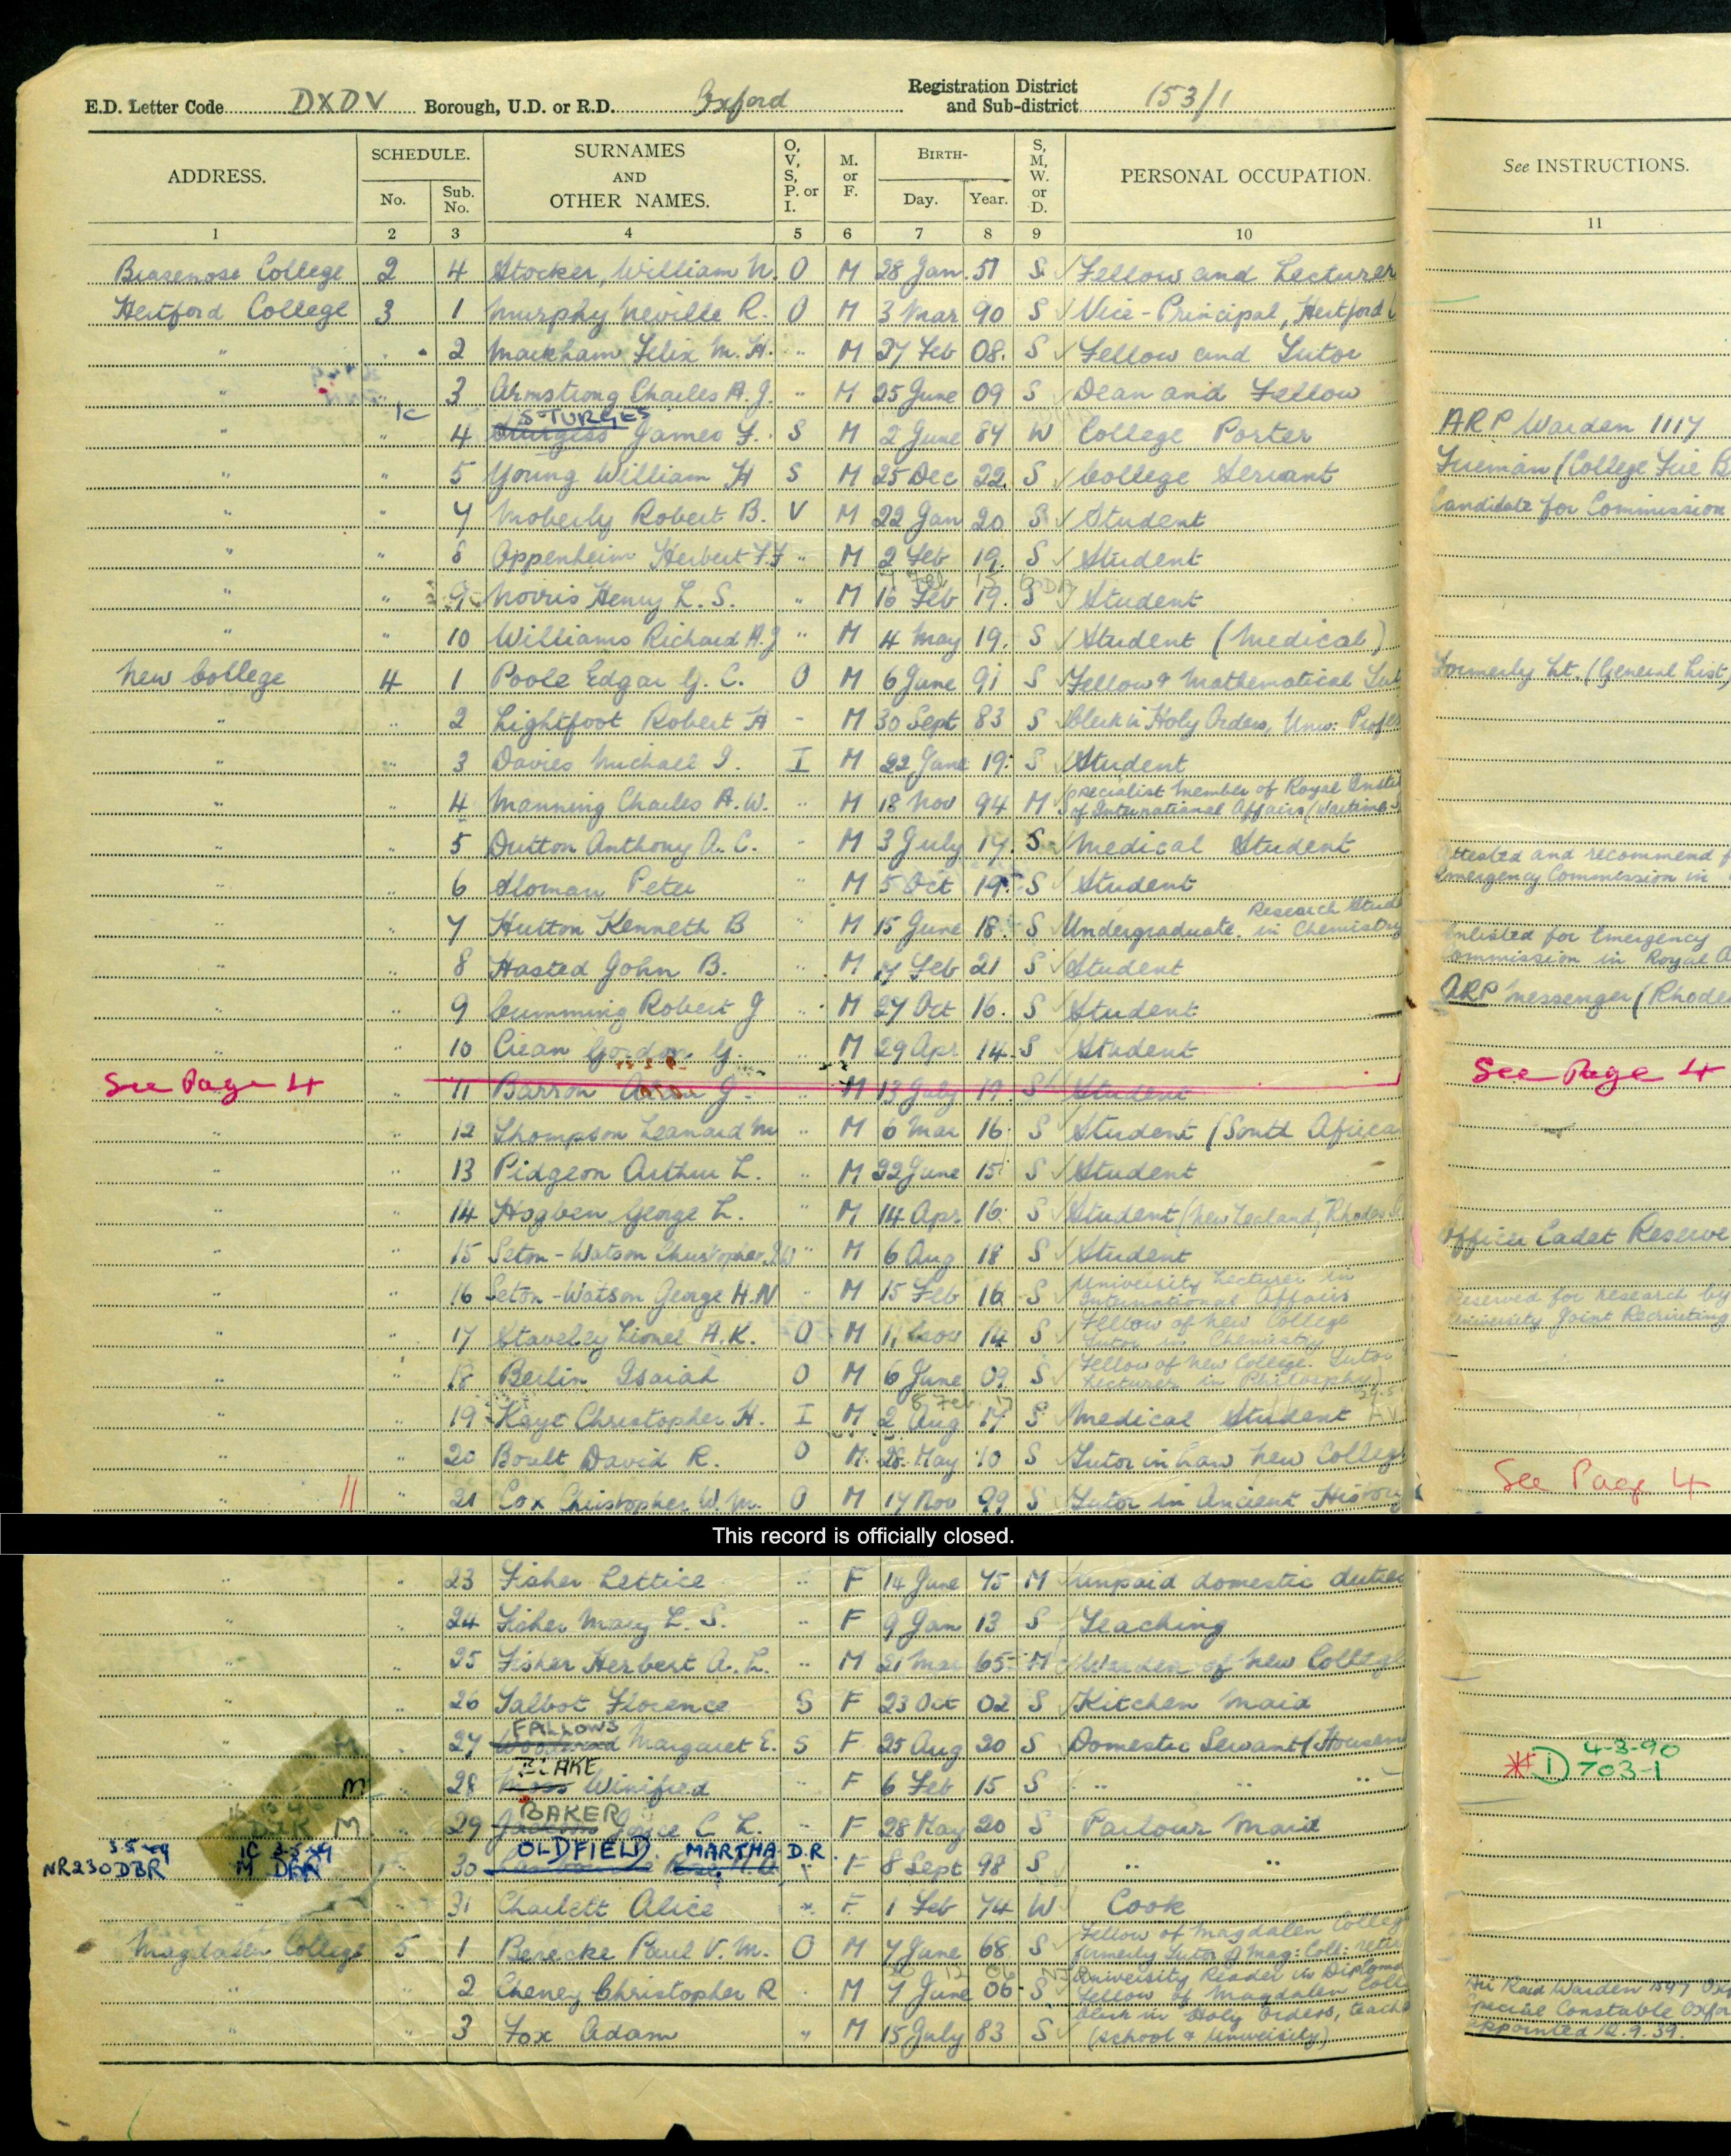 E.D. Letter Code DXDV Borough, U.D. or R.D. Oxford Registration District and Sub-district 153/1
ADDRESS. SCHEDULE. No. Sub. No. SURNAMES AND OTHER NAMES. O, V, S, P. or I. M. or F. BIRTH- Day. Year. S, M, W. or D. PERSONAL OCCUPATION. See INSTRUCTIONS.
1 2 3 4 5 6 7 8 9 10 11
Brasenose College 2 4 Stocker, William N. O M 28 Jan 51 S Fellow and Lecturer
Hertford College 3 1 Murphy Neville R. O M 3 Mar 90 S Vice-Principal, Hertford
" 2 Markham Felix M. H. " M 27 Feb 08 S Fellow and Tutor
" " 3 Armstrong Charles A. J. " M 25 June 09 S Dean and Fellow
1C STURGES
" " 4 Sturgess James F. S M 2 June 84 W College Porter ARP Warden 1117
" " 5 Young William H S M 25 Dec 22 S College Servant Fireman (College Fire B
" " 7 Moberly Robert B. V M 22 Jan 20 S Student Candidate for Commission
" " 8 Oppenheim Herbert F. F " M 2 Feb 19 S Student
" " 9 Norris Henry L. S. " M 16 Feb 19 S Student
" " 10 Williams Richard A. J " M 4 May 19 S Student (Medical)
New College 4 1 Poole Edgar G. C. O M 6 June 91 S Fellow & Mathematical Tut Formerly Lt. (General List)
" " 2 Lightfoot Robert H - M 30 Sept 83 S Clerk in Holy Orders, Univ: Profes
" " 3 Davies Michael I. I M 22 June 19 S Student
" " 4 Manning Charles A. W. " M 18 Nov 94 M Specialist Member of Royal Instit
of International Affairs (Wartime
" " 5 Dutton Anthony A. C. " M 3 July 19 S Medical Student
" " 6 Sloman Peter M 5 Oct 19 S Student Attested and recommend f
Emergency Commission in
" " 7 Hutton Kenneth B " M 15 June 18 S Undergraduate. Research Stud in Chemistry
" " 8 Hasted John B. " M 7 Feb 21 S Student Enlisted for Emergency
Commission in Royal A
" " 9 Cumming Robert J " M 27 Oct 16 S Student ARP Messenger (Rhode
" 10 Crean Gordon G. " M 29 Apr 14 S Student
See Page 4 " 11 Barron J. " M 13 July 19 S Student See Page 4
" " 12 Thompson Leonard M " M 6 Mar 16 S Student (South Africa
" " 13 Pidgeon Arthur L. " M 22 June 15 S Student
" " 14 Hogben George L. " M 14 Apr 16 S Student (New Zealand, Rhodes Sc
" " 15 Seton-Watson Christopher I. W " M 6 Aug 18 S Student Officer Cadet Reserve
" " 16 Seton-Watson George H. N " M 15 Feb 16 S University Lecturer in
International Affairs Reserved for research by
University Joint Recruiting
" " 17 Staveley Lionel A. K. O M 1, Nov 14 S Fellow of New College
Tutor in Chemistry
" " 18 Berlin Isaiah O M 6 June 09 S Fellow of New College. Tutor
Lecturer in Philosophy
8 Feb 17
" " 19 Kaye Christopher H. I M 2 Aug 17 S Medical Student
" " 20 Boult David R. O M 28 May 10 S Tutor in Law New College
" 11 " 21 Cox Christopher W. M. O M 17 Nov 99 S Tutor in Ancient History See Page 4
This record is officially closed.
" " 23 Fisher Lettice " F 14 June 75 M Unpaid domestic duties
" " 24 Fisher Mary L. S. " F 9 Jan 13 S Teaching
" " 25 Fisher Herbert A. L. " M 21 Mar 65 M Warden of New College
" " 26 Talbot Florence S F 23 Oct 02 S Kitchen Maid
FALLOWS
" " 27 Woodward Margaret E. S F 25 Aug 20 S Domestic Servant (Housem
* D 4-3-90
703-1
BLAKE
" M " 28 Moss Winifred " F 6 Feb 15 S " " "
BAKER
M 29 Jackson Joyce C L. " F 28 May 20 S Parlour Maid
NR230 DBR 3-5-49 1C M OLDFIELD. MARTHA D.R.
30 " F 8 Sept 98 S " "
" 31 Charlett Alice " F 1 Feb 74 W Cook
Magdalen College 5 1 Benecke Paul V. M. O M 7 June 68 S Fellow of Magdalen College
formerly Tutor of Mag: Coll: retir
" " 2 Cheney Christopher R " M 7 June 06 S University Reader in Diploma
Fellow of Magdalen Coll Air Raid Warden 1347 Oxf
" " 3 Fox Adam " M 15 July 83 S Clerk in Holy Orders, teache
(School & University) Special Constable Oxfor
appointed 12.9.39.